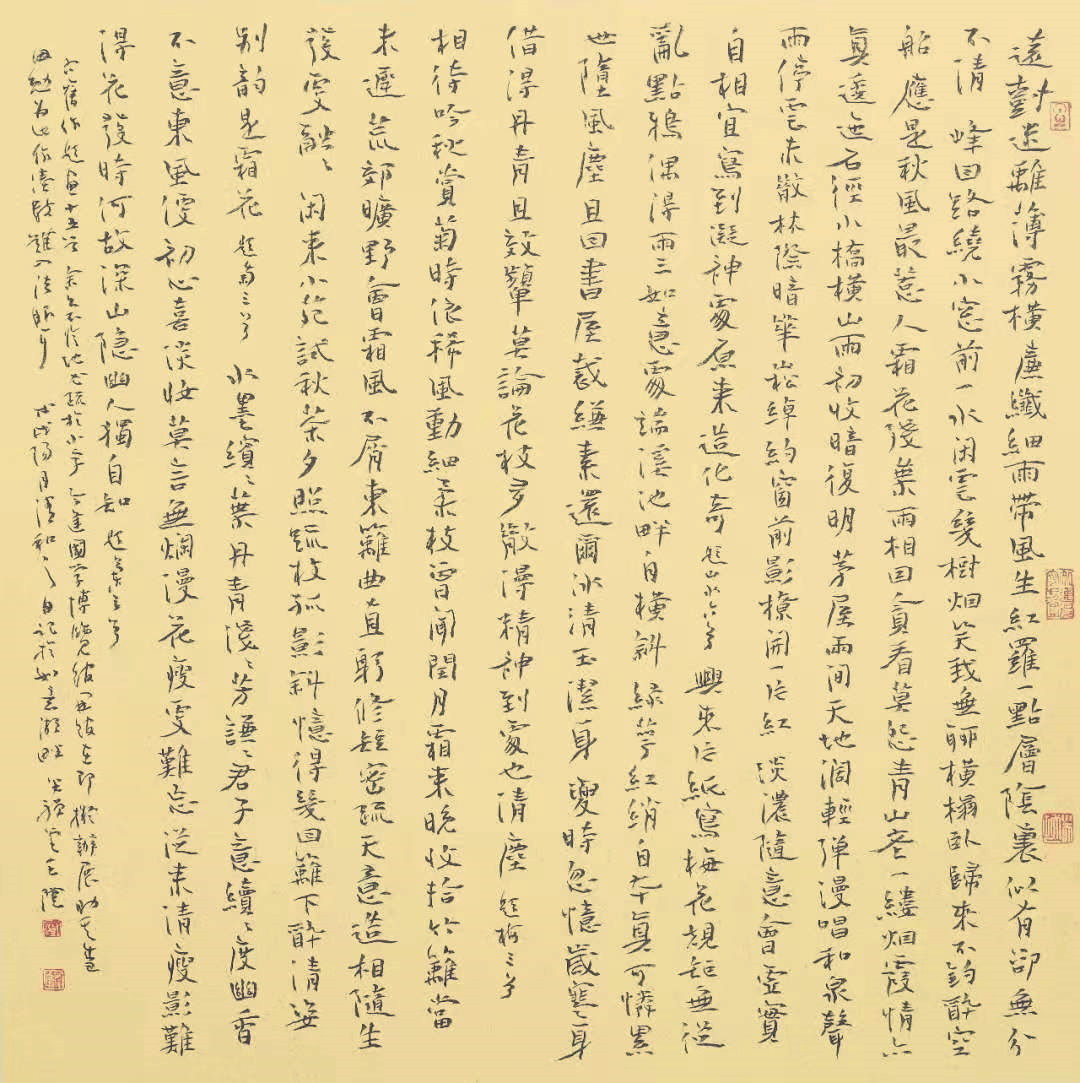 遠對迷離薄霧橫廉纖細雨帶風生紅羅一點層陰裏似有卻無分
不清 峰回路繞小窗前一水閑雲幾樹烟笑我無聊橫榻臥歸來不釣醉空
船應是秋風最惹人霜花淺葉雨相回貪看莫怨青山老一縷烟霞情亦
真逶迤石徑小橋橫山雨初收暗復明茅屋兩間天地闊輕彈漫唱和泉聲
雨停雲未散林際暗華崧綽約窗前影撩開一片紅 淡濃隨意會虛實
自相宜寫到凝神處原來造化奇 題山水六首 興來片紙寫梅花規矩無從
亂點鴉偶得兩三如意處端溪池畔自橫斜 綠萼紅綃自本真可憐黑
世墮風塵且回書屋裁縑素還爾冰清玉潔身 變時忽憶歲寒身
借得丹青且效顰莫論花枝多散漫精神到處也清塵 題梅三首
相待吟秋賞菊時依稀風動細柔枝曾聞閏月霜來晚收拾竹籬當
未遲荒郊曠野會霜風不屑東籬曲直躬修短密疏天意造相隨生
發更融融 閑來小苑試秋茶夕照疏枝孤影斜憶得幾回籬下醉清姿
別韵是霜花 題菊三首 水墨繽繽葉丹青淺淺芳謙謙君子意續續度幽香
不意東風浸初心喜淡妝莫言無爛漫花瘦更難忘從來清瘦影難
得花發時何故深山隱幽人獨自知 題蘭三首
右舊作題畫十五首 余不於地書疏於小字 今逢國學博覽館開館在即擬辦展助其盛
因勉為此作淩駁難入法眼耳 戊戌陽月清和 自記於如意湖畔